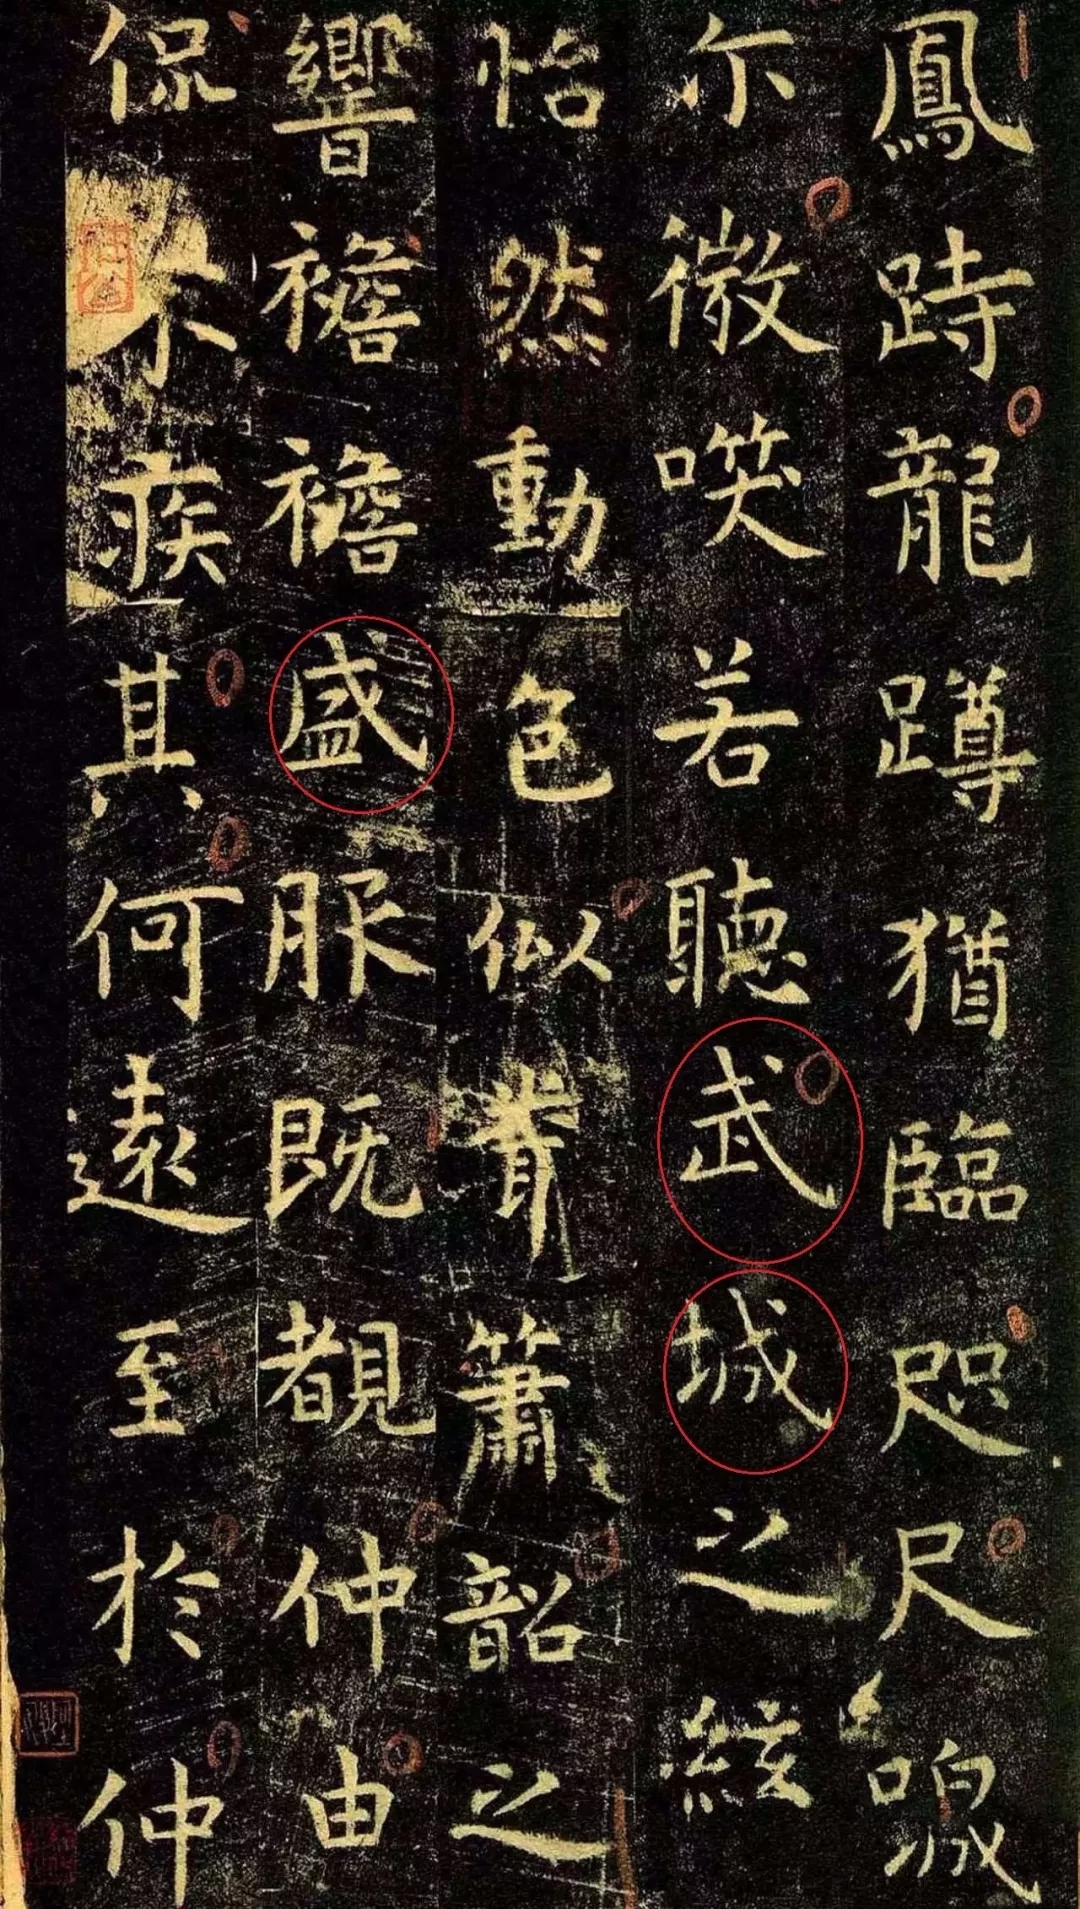 鳳跱龍蹲猶臨咫尺
尓微㗛若聽武城之絃
怡然動色似聞簫韶之
響襜襜盛服既覩仲由
侃不疾其何遠至於仲